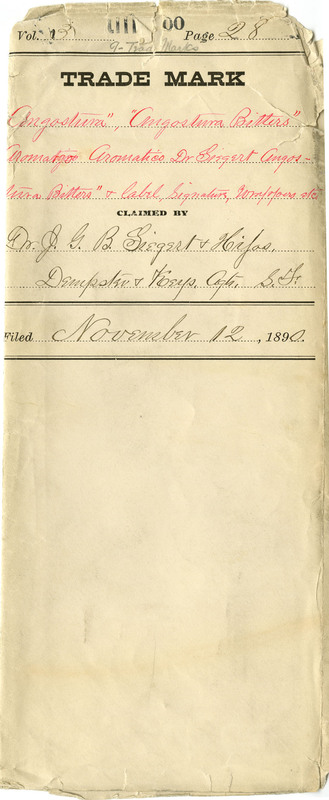 Vol. 13 Page 28
9- Trade Marks
TRADE MARK
Angostura", "Angostura Bitters"
Aromatico Dr Siegert Angos-
tura Bitters" & Label, Signature, Wrappers etc
CLAIMED BY
Dr. J. G. B Siegert & Hijos
Dempster & Keys Agts. S. F.
Filed November 12, 1890.